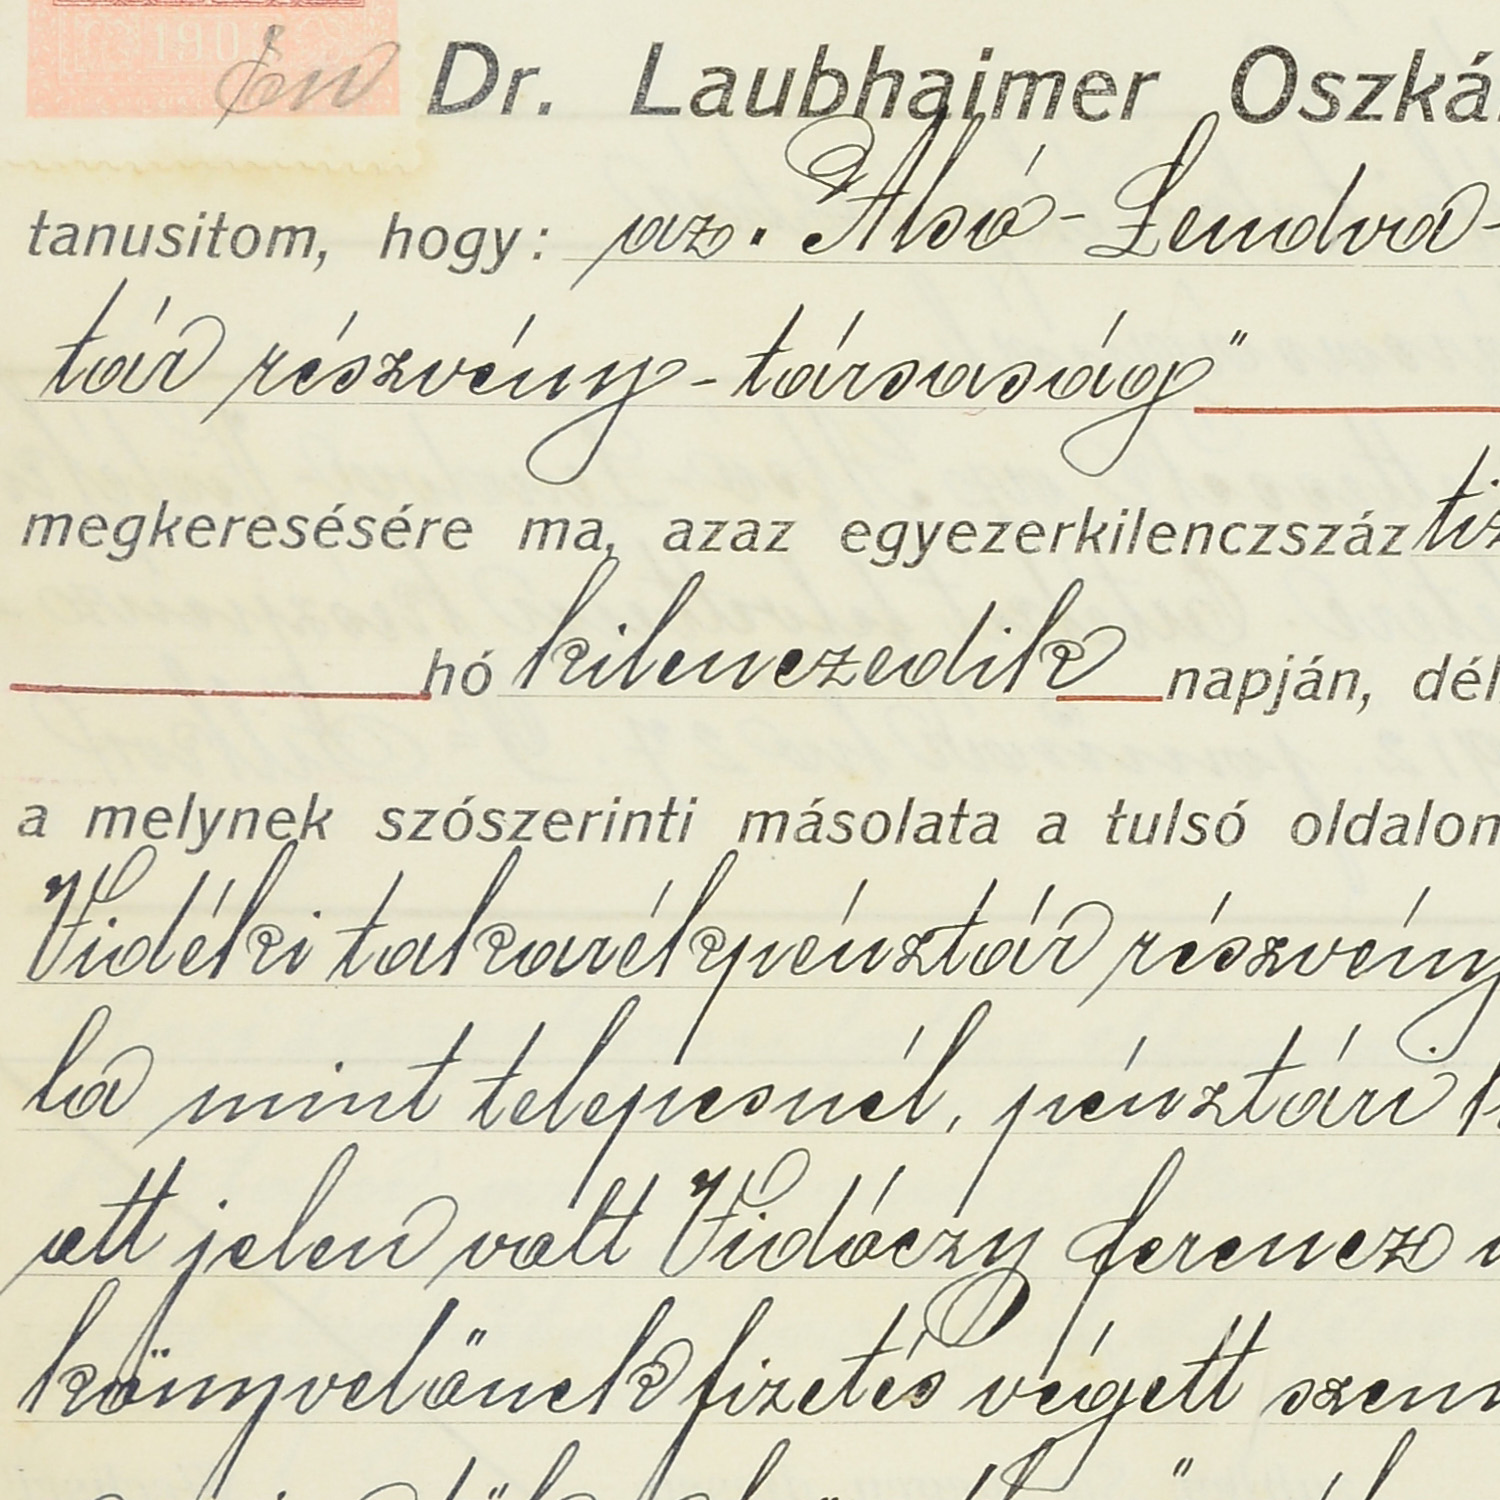 190
Én Dr. Laubhaimer Oszká
tanusitom, hogy: az. Alsó-Lendva-
tár részvény-társaság"
megkeresésére ma, azaz egyezerkilenczszáz tiz
hó kilenczedik napján, dél
a melynek szószerinti másolata a tulsó oldalon
Vidéki takarékpénztár részvény
la mint telepesnél, pénztári
ott jelen volt Vidóczy ferencz
könyvelőnek fizetés végett szem